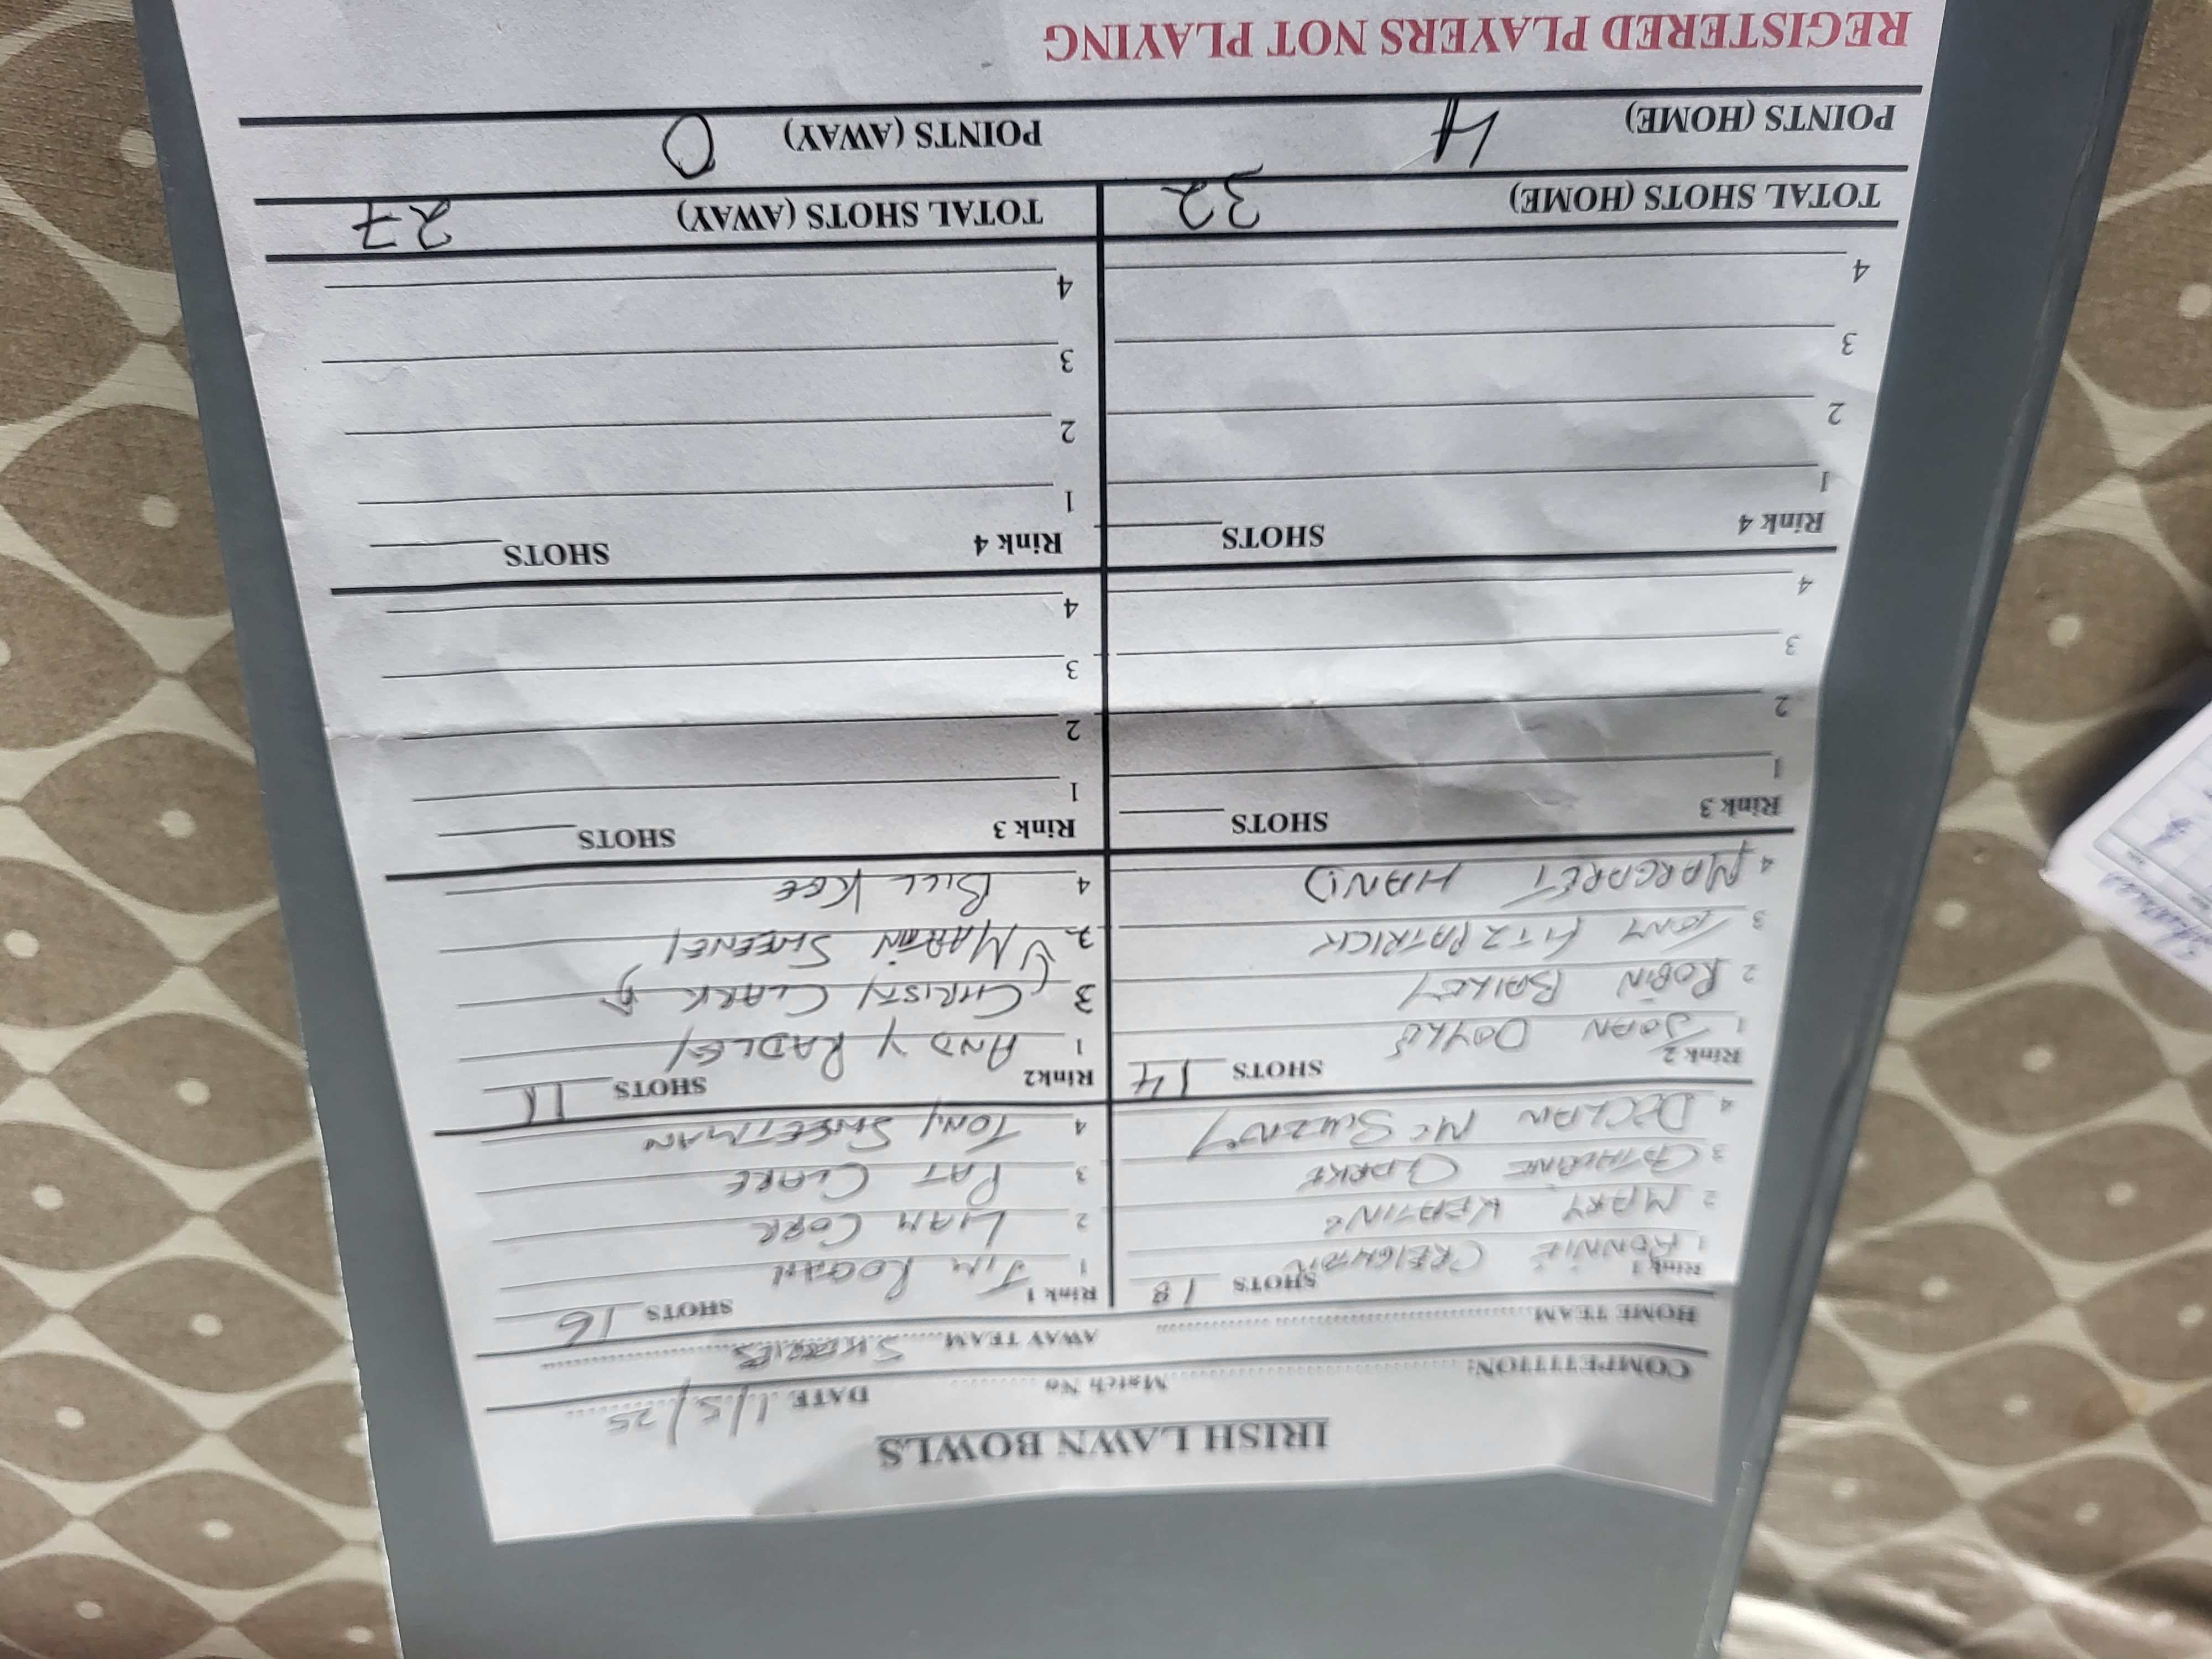 IRISH LAWN BOWLS
COMPETITION: Match No DATE 1/5/25
HOME TEAM AWAY TEAM SKERRIES
Rink 1 SHOTS 18 Rink 1 SHOTS 16
1 RONNIE CREIGHTON 1 JIM ROGAN
2 MARY KEATING 2 LIAM CORR
3 CATHERINE CLARKE 3 PAT CLARE
4 DECLAN MCSWEENEY 4 TONY SWEETMAN
Rink 2 SHOTS 14 Rink2 SHOTS 11
1 JOAN DOYLE 1 ANDY RADLEY
2 ROBIN BAILEY 3 CHRISTY CLARK
3 TONY FITZPATRICK 2 MARTIN SWEENEY
4 MARGARET HAND 4 BILL KEE
Rink 3 SHOTS Rink 3 SHOTS
1 1
2 2
3 3
4 4
Rink 4 SHOTS Rink 4 SHOTS
1 1
2 2
3 3
4 4
TOTAL SHOTS (HOME) 32 TOTAL SHOTS (AWAY) 27
POINTS (HOME) 4 POINTS (AWAY) 0
REGISTERED PLAYERS NOT PLAYING